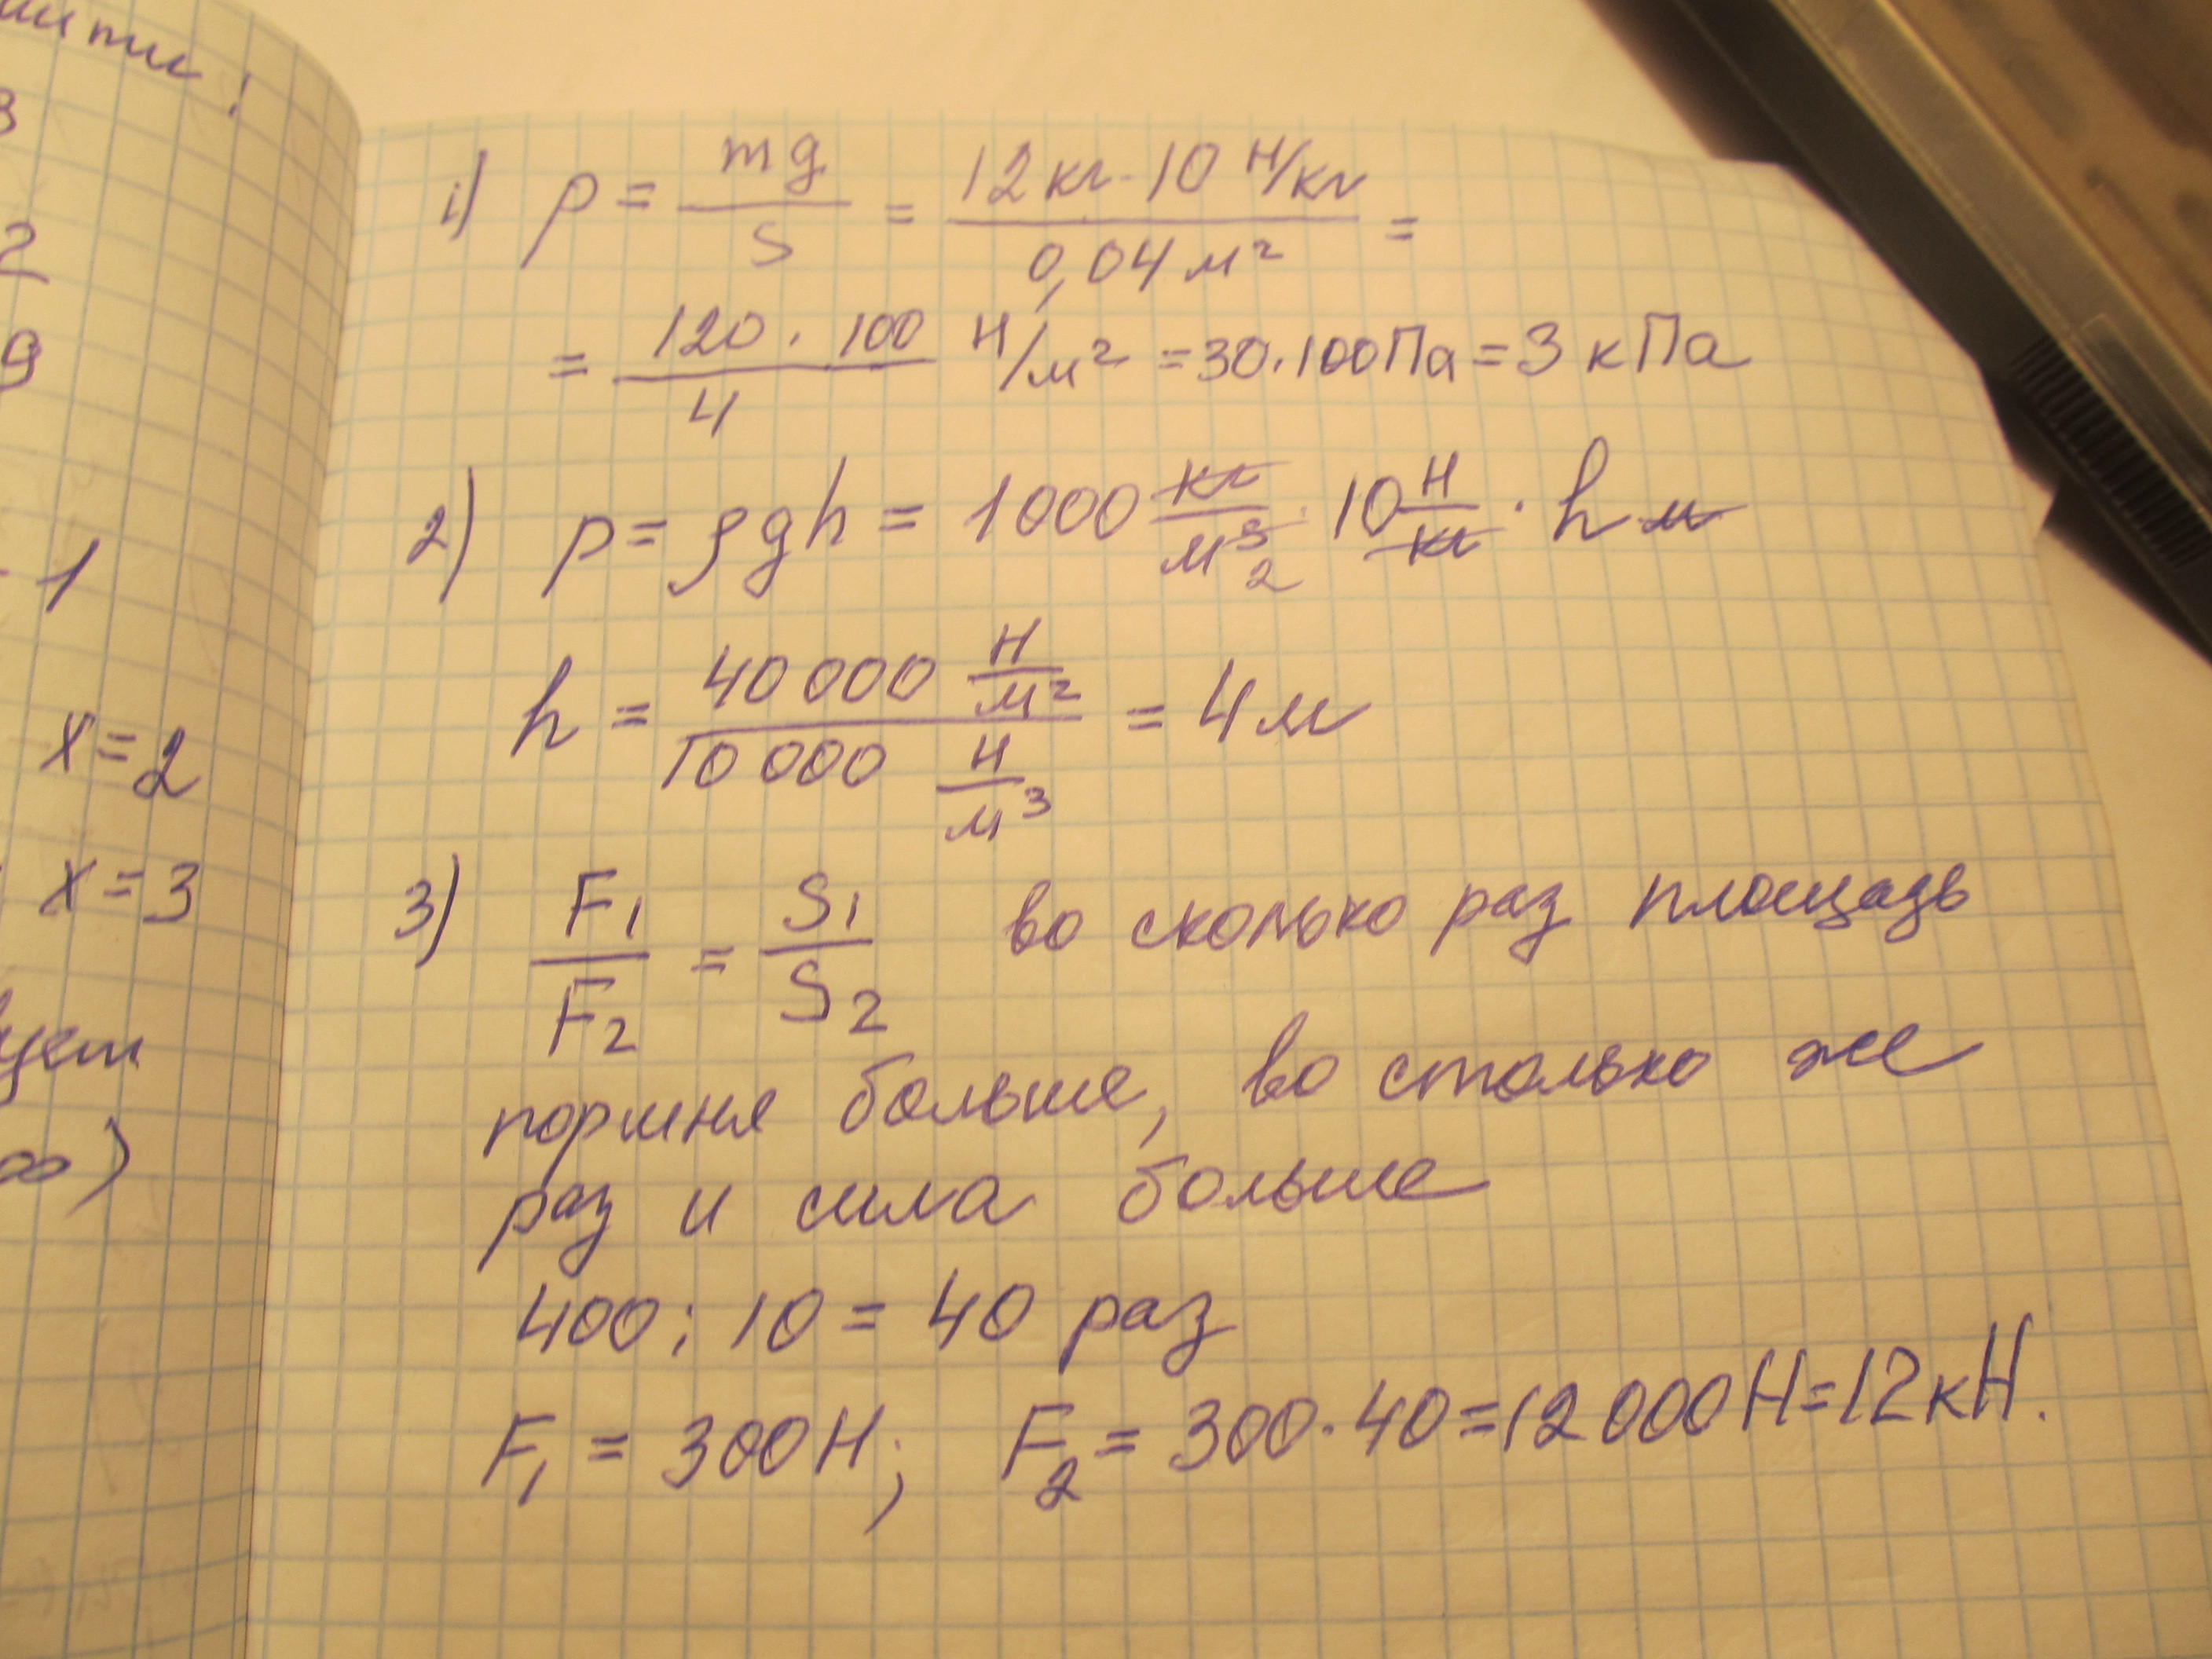 3
2
9
1
x=2
x=3
∞)
1) p = mg/S = 12 кг · 10 Н/кг / 0,04 м² =
= 120 · 100 / 4 Н/м² = 30·100 Па = 3 кПа
2) p = ρgh = 1000 кг/м³ 2 · 10 Н/кг · h м
h = 40 000 Н/м² / 10 000 Н/м³ = 4 м
3) F₁/F₂ = S₁/S₂ во сколько раз площадь
поршня больше, во столько же
раз и сила больше
400 : 10 = 40 раз
F₁ = 300 Н; F₂ = 300·40=12 000 Н=12 кН.